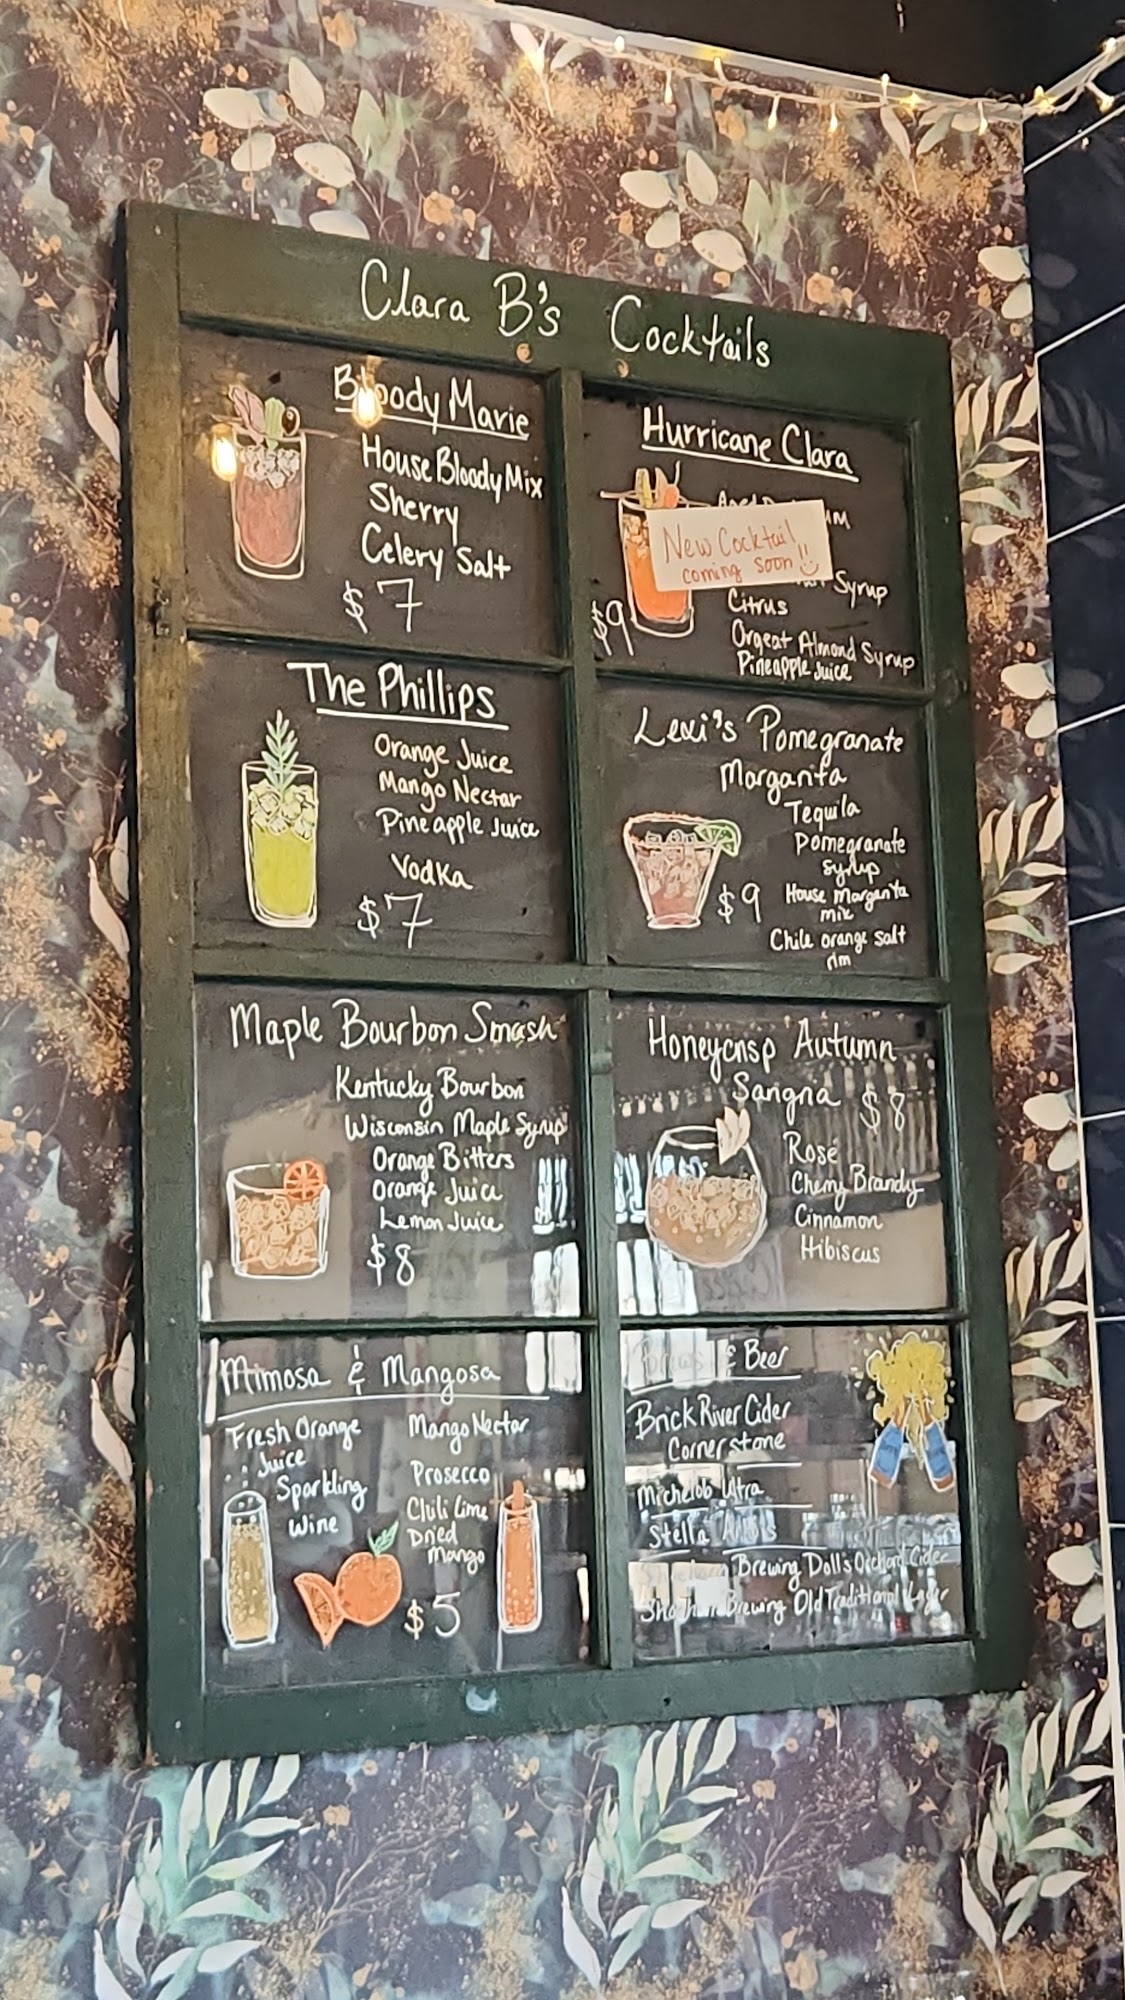 Clara B's Cocktails
Bloody Marie
House Bloody Mix
Sherry
Celery Salt
$7
Hurricane Clara
New Cocktail
coming soon!!
Syrup
Citrus
Orgeat Almond Syrup
Pineapple Juice
$9
The Phillips
Orange Juice
Mango Nectar
Pineapple Juice
Vodka
$7
Lexi's Pomegranate
Margarita
Tequila
Pomegranate
syrup
House margarita
mix
Chile orange salt
rim
$9
Maple Bourbon Smash
Kentucky Bourbon
Wisconsin Maple Syrup
Orange Bitters
Orange Juice
Lemon Juice
$8
Honeycrisp Autumn
Sangria $8
Rosé
Cherry Brandy
Cinnamon
Hibiscus
Mimosa & Mangosa
Fresh Orange
Juice
Sparkling
Wine
Mango Nectar
Prosecco
Chili Lime
Dried
Mango
$5
& Beer
Brick River Cider
Cornerstone
Michelob Ultra
Stella Artois
Brewing Doll's Orchard Cider
Brewing Old Traditional Lager